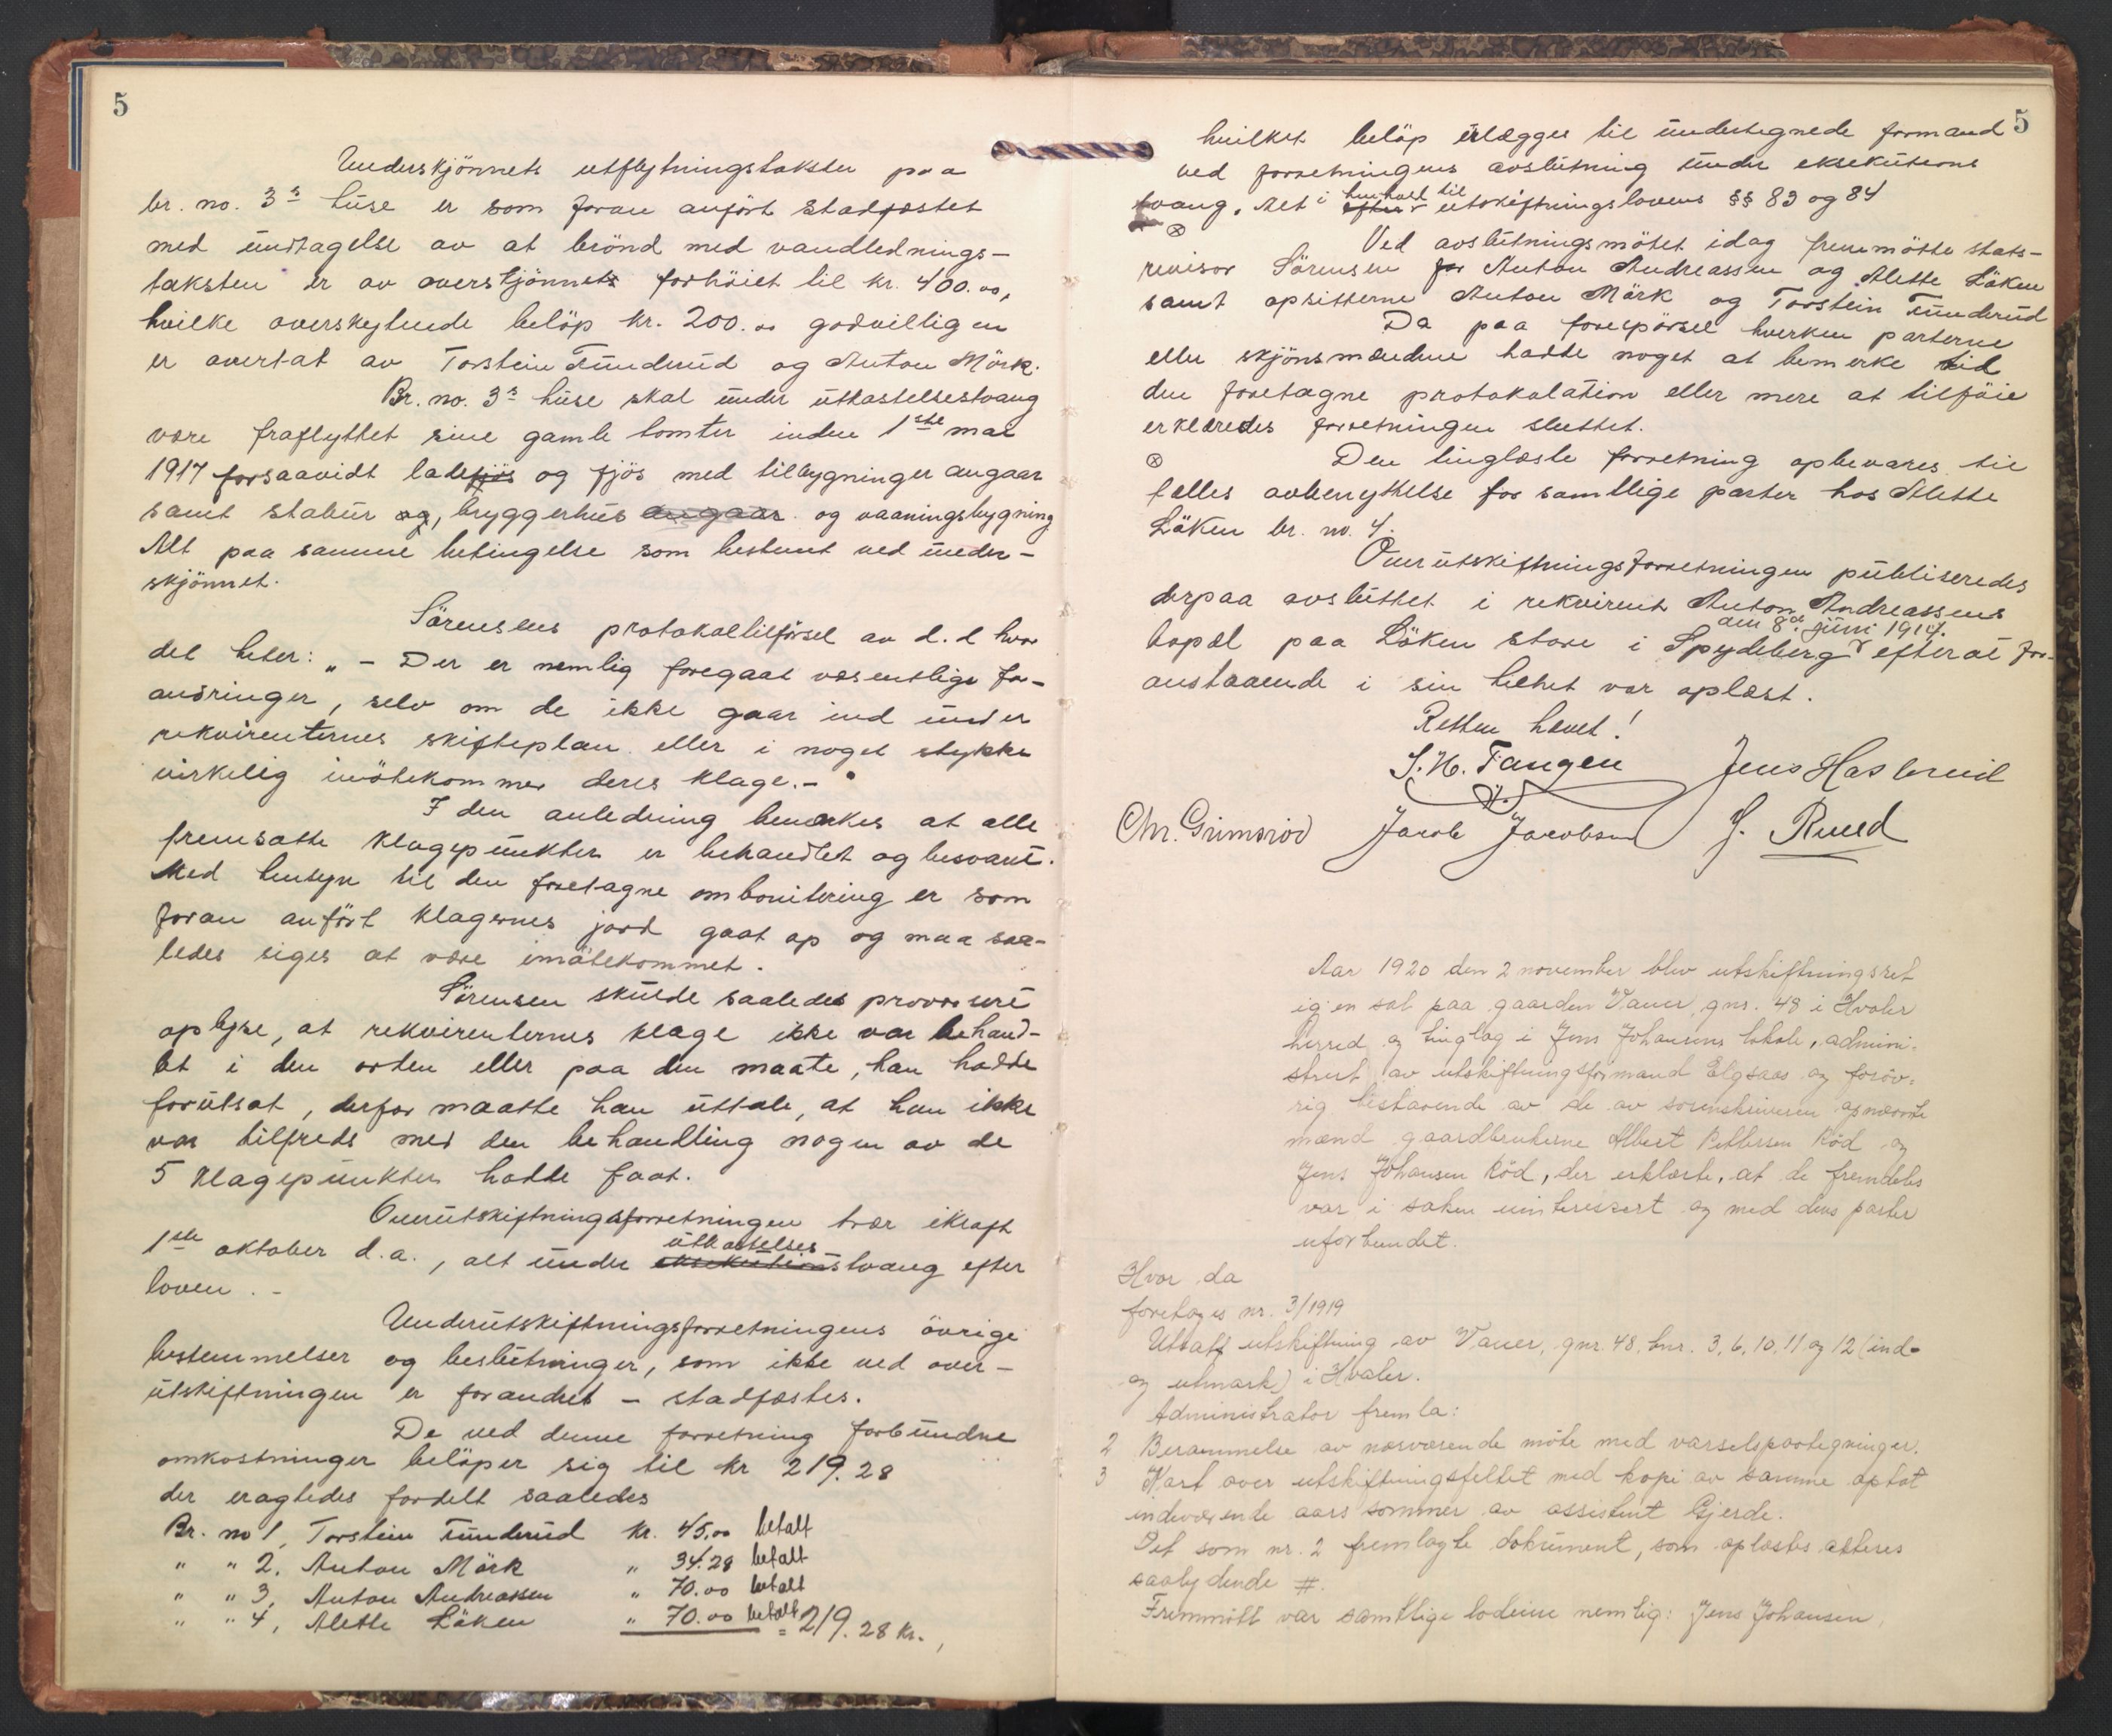 5
Underskjönnets utflytningstakster paa
br. no. 3s huse er som foran anfört stadfæstet
med undtagelse av at brönd med vandlednings-
taksten er av overskjönnets forhöiet til kr. 400.00,
hvilke overskytende belöp kr. 200.00 godvilligen
er overtat av Torstein Tünderud og Anton Mörk.
Br. no. 3s huse skal under utkastelsestvang
være fraflyttet sine gamle tomter inden 1ste mai
1917 forsaavidt ladefjös og fjös med tilbygninger angaar
samt stabur og, bryggerhus angaar og vaaningsbygning
Alt paa samme betingelse som bestemt ved under-
skjönnet.
Sörensens protokoltilförsel av d.d hvor
det heter: „ - Der er nemlig foregaat væsentlige for-
andringer, selv om de ikke gaar ind under
rekvirenternes skifteplan eller i noget stykke
virkelig imötekommer deres klage. - "
I den anledning bemerkes at alle
fremsatte klagepunkter er behandlet og besvart.
Med hensyn til den foretagne ombonitering er som
foran anfört klagernes jord gaat op og maa saa-
ledes siges at være imötekommet.
Sörensen skulde saaledes provosere
oplyse, at rekvirenternes klage ikke var behand-
let i den orden eller paa den maate, han hadde
forutsat, derfor maatte han uttale, at han ikke
var tilfreds med den behandling nogen av de
5 klagepunkter hadde faat.
Overutskiftningsforretningen trær ikraft
1ste oktober d.a., alt under eksekutions utkastelses tvang efter
loven. -
Underutskiftningsforretningens övrige
bestemmelser og beslutninger, som ikke ved over-
utskiftningen er forandret - stadfæstes.
De ved denne forretning forbundne
omkostninger belöper sig til kr 219.28
der eragtedes fordelt saaledes
Br. no 1, Torstein Tünderud kr. 45.00 betalt
" " 2, Anton Mörk " 34.28 betalt
" " 3, Anton Andreassen " 70.00 betalt
" " 4, Alette Löken " 70.00 betalt = 219.28 kr.,
5
hvilket belöp erlægges til undertegnede formand
ved forretningens avslutning under eksekutions
tvang. Alt i efter henhold til utskiftningslovens §§ 83 og 84
⊗
Ved avslutningsmötet idag fremmötte stats-
revisor Sörensen for Anton Andreassen og Alette Löken
samt opsitterne Anton Mörk og Torstein Tünderud
Da paa forespörsel hverken parterne
eller skjönsmændene hadde noget at bemerke til
den foretagne protokolation eller mere at tilföie
erklæredes forretningen sluttet.
⊗ Den tinglæste forretning opbevares til
fælles avbenyttelse for samtlige parter hos Alette
Löken br. no. 4.
Overutskiftningsforretningen publiseredes
derpaa avsluttet i rekvirent Anton Andreassens
bopæl paa Löken store i Spydeberg den 8de juni 1917. efterat for-
anstaaende i sin helhet var oplæst.
Retten hævet!
S. H. Tangen Jens Hasleruil
Chr. Grimsröd Jacob Jacobsen J. Ruud
Aar 1920 den 2 november blev utskiftningsret
igjen sat paa gaarden Vauer, gnr. 48 i Hvaler
herred og tinglag i Jens Johansens lokale, admini-
strert av utskiftningsformand Elgsaas og foröv-
rig bestaaende av de av sorenskriveren opnævnte
mænd gaardbrukerne Albert Pettersen Röd og
Jens Johansen Röd, der erklærte, at de fremdeles
var i saken uinteressert og med dens parter
uforbundet.
Hvor da
foretoges nr. 3/1919
Utsatt utskiftning av Vauer, gnr. 48, bnr. 3, 6, 10, 11 og 12 (ind-
og utmark) i Hvaler.
Administrator fremla:
2 Berammelse av nærværende möte med varselspaategninger.
3 Kart over utskiftningsfeltet med kopi av samme optat
indeværende aars sommer av assistent Gjerde.
Det som nr. 2 fremlagte dokument, som oplæstes akteres
saalydende #.
Fremmött var samtlige lodeiere nemlig: Jens Johansen,